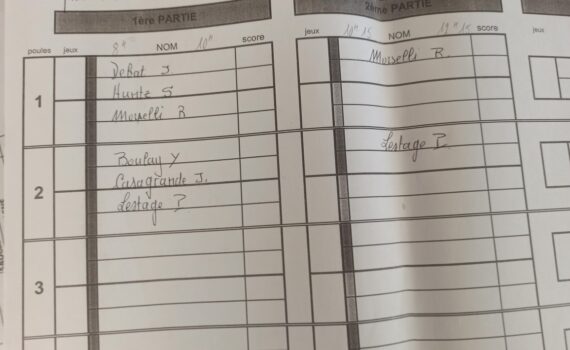 1ère PARTIE
2ème PARTIE
poules jeux 8H NOM 10H score
jeux 10H 15 NOM score
jeux
1
Debat J
Hunte S
Morselli R
Morselli R.
2
Boulay Y
Casagrande J.
Lestage P
Lestage P
3